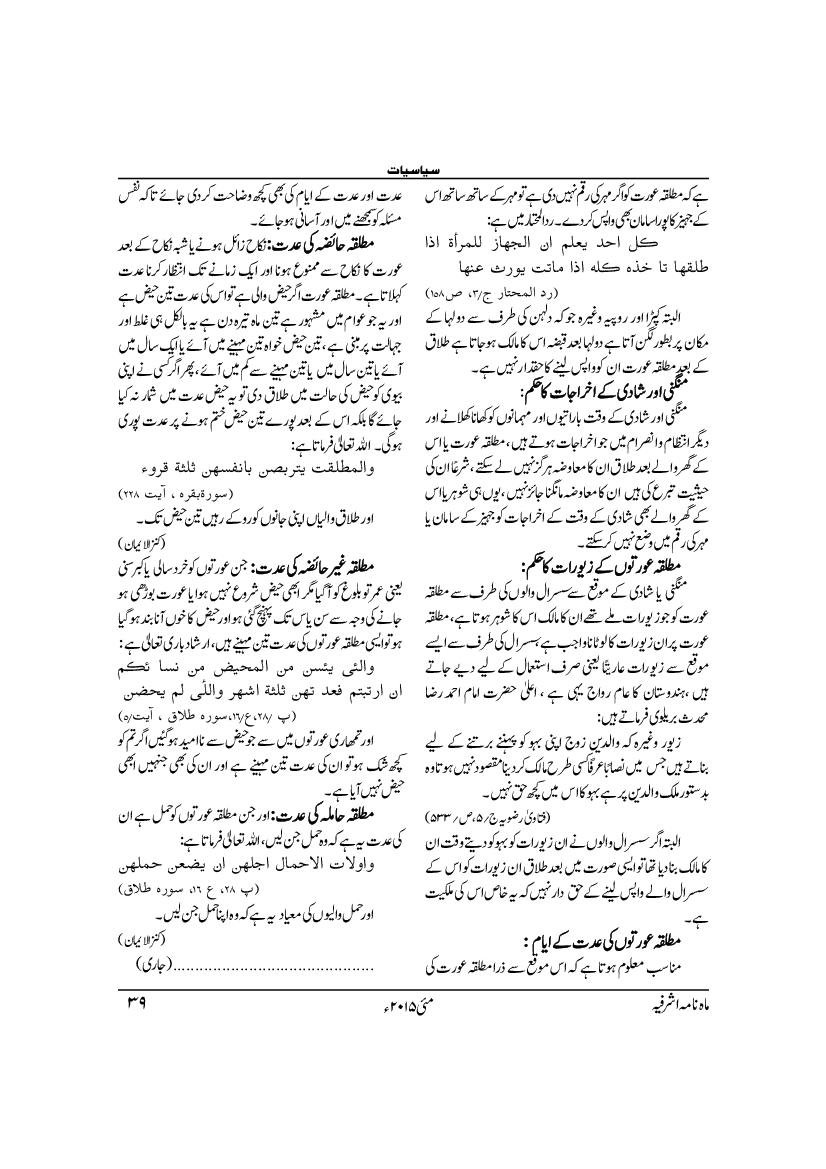 سیاسیات
ہے کہ مطلقہ عورت کو اگر مہر کی رقم نہیں دی ہے تو مہر کے ساتھ ساتھ اس
کے جہیز کا پورا سامان بھی واپس کر دے۔ رد المختار میں ہے:
کل احد یعلم ان الجھاز للمرأۃ اذا
طلقھا تا خذہ کلہ اذا ماتت یورث عنھا
(رد المحتار ج/۳، ص۱۵۸)
البتہ کپڑا اور روپیہ وغیرہ جو کہ دلہن کی طرف سے دولہا کے
مکان پر بطور لگن آتا ہے دولہا بعد قبضہ اس کا مالک ہو جاتا ہے طلاق
کے بعد مطلقہ عورت ان کو واپس لینے کا حقدار نہیں ہے۔
منگنی اور شادی کے اخراجات کا حکم:
منگنی اور شادی کے وقت باراتیوں اور مہمانوں کو کھانا کھلانے اور
دیگر انتظام و انصرام میں جو اخراجات ہوتے ہیں، مطلقہ عورت یا اس
کے گھر والے بعد طلاق ان کا معاوضہ ہرگز نہیں لے سکتے، شرعًا ان کی
حیثیت تبرع کی ہیں ان کا معاوضہ مانگنا جائز نہیں، یوں ہی شوہر یا اس
کے گھر والے بھی شادی کے وقت کے اخراجات کو جہیز کے سامان یا
مہر کی رقم میں وضع نہیں کر سکتے۔
مطلقہ عورتوں کے زیورات کا حکم:
منگنی یا شادی کے موقع سے سسرال والوں کی طرف سے مطلقہ
عورت کو جو زیورات ملے تھے ان کا مالک اس کا شوہر ہوتا ہے، مطلقہ
عورت پر ان زیورات کا لوٹانا واجب ہے، سسرال کی طرف سے ایسے
موقع سے زیورات عاریتًا یعنی صرف استعمال کے لیے دیے جاتے
ہیں، ہندوستان کا عام رواج یہی ہے، اعلیٰ حضرت امام احمد رضا
محدث بریلوی فرماتے ہیں:
زیور وغیرہ کہ والدین زوج اپنی بہو کو پہننے برتنے کے لیے
بناتے ہیں جس میں نصًا یا عرفًا کسی طرح مالک کر دینا مقصود نہیں ہوتا وہ
بدستور ملک والدین پر ہے بہو کا اس میں کچھ حق نہیں۔
(فتاویٰ رضویہ ج/۵، ص/۵۳۳)
البتہ اگر سسرال والوں نے ان زیورات کو بہو کو دیتے وقت ان
کا مالک بنا دیا تھا تو ایسی صورت میں بعد طلاق ان زیورات کو اس کے
سسرال والے واپس لینے کے حق دار نہیں کہ یہ خاص اس کی ملکیت
ہے۔
مطلقہ عورتوں کی عدت کے ایام:
مناسب معلوم ہوتا ہے کہ اس موقع سے ذرا مطلقہ عورت کی
عدت اور عدت کے ایام کی بھی کچھ وضاحت کر دی جائے تاکہ نفس
مسئلہ کو سمجھنے میں اور آسانی ہو جائے۔
مطلقہ حائضہ کی عدت: نکاح زائل ہونے یا شبہ نکاح کے بعد
عورت کا نکاح سے ممنوع ہونا اور ایک زمانے تک انتظار کرنا عدت
کہلاتا ہے۔ مطلقہ عورت اگر حیض والی ہے تو اس کی عدت تین حیض ہے
اور یہ جو عوام میں مشہور ہے تین ماہ تیرہ دن ہے یہ بالکل ہی غلط اور
جہالت پر مبنی ہے، تین حیض خواہ تین مہینے میں آئے یا ایک سال میں
آئے یا تین سال میں یا تین مہینے سے کم میں آئے، پھر اگر کسی نے اپنی
بیوی کو حیض کی حالت میں طلاق دی تو یہ حیض عدت میں شمار نہ کیا
جائے گا بلکہ اس کے بعد پورے تین حیض ختم ہونے پر عدت پوری
ہوگی۔ اللہ تعالیٰ فرماتا ہے:
والمطلقت یتربصن بانفسھن ثلثۃ قروء
(سورۃ بقرہ ، آیت ۲۲۸)
اور طلاق والیاں اپنی جانوں کو روکے رہیں تین حیض تک۔
(کنز الایمان)
مطلقہ غیر حائضہ کی عدت: جن عورتوں کو خرد سالی یا کبر سنی
یعنی عمر تو بلوغ کو آگیا مگر ابھی حیض شروع نہیں ہوا یا عورت بوڑھی ہو
جانے کی وجہ سے سن یاس تک پہنچ گئی ہو اور حیض کا خوں آنا بند ہو گیا
ہو تو ایسی مطلقہ عورتوں کی عدت تین مہینے ہیں، ارشاد باری تعالیٰ ہے:
والئی یئسن من المحیض من نسا ئکم
ان ارتبتم فعد تھن ثلثۃ اشھر واللّٰی لم یحضن
(پ /۲۸،ع/۱۶،سورہ طلاق ، آیت/۵)
اور تمھاری عورتوں میں سے جو حیض سے نا امید ہو گئیں اگر تم کو
کچھ شک ہو تو ان کی عدت تین مہینے ہے اور ان کی بھی جنہیں ابھی
حیض نہیں آیا ہے۔
مطلقہ حاملہ کی عدت: اور جن مطلقہ عورتوں کو حمل ہے ان
کی عدت یہ ہے کہ وہ حمل جن لیں، اللہ تعالیٰ فرماتا ہے:
واولات الاحمال اجلھن ان یضعن حملھن
(پ ۲۸، ع ۱۶، سورہ طلاق)
اور حمل والیوں کی معیاد یہ ہے کہ وہ اپنا حمل جن لیں۔
(کنز الایمان)
..............................................(جاری)
ماہ نامہ اشرفیہ
مئی ۲۰۱۵ء
۳۹